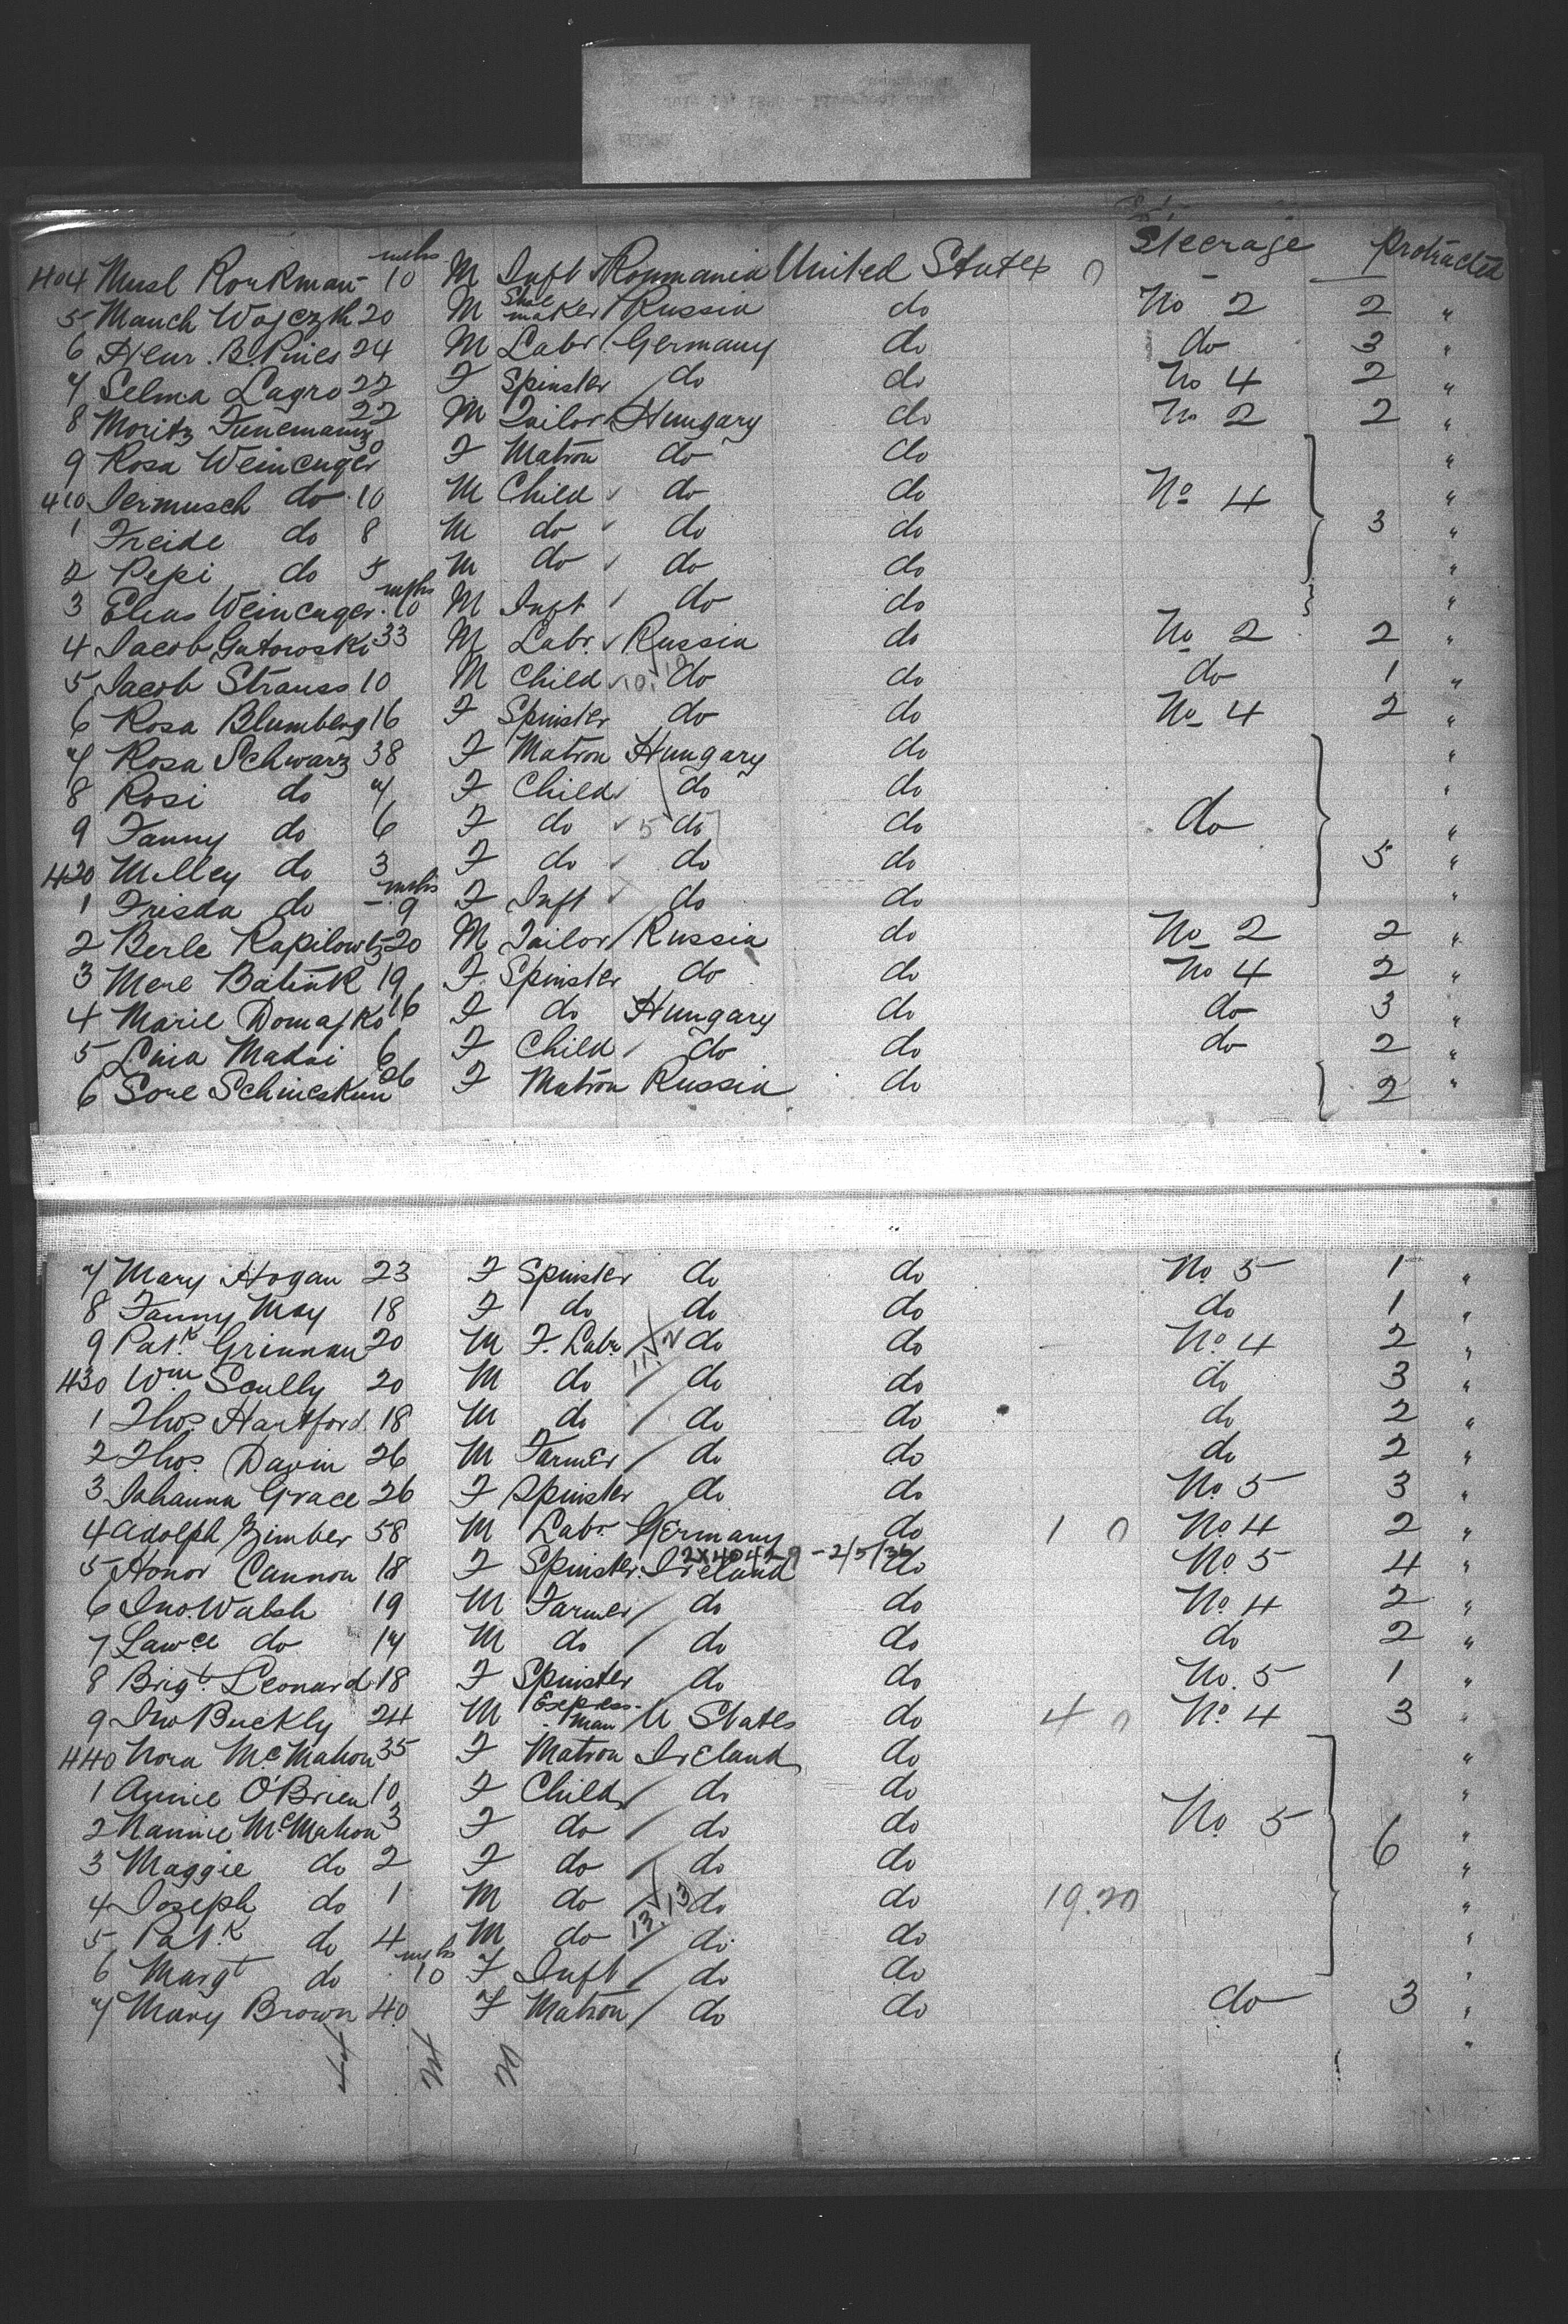 Steerage Protracted
404 Musl Rorkman - mths 10 M Inft Roumania United States 0 - —
5 Mauch Wojczth 20 M Shoemaker Russia do No 2 2 "
6 Heur. B. Pines 24 M Labr Germany do do 3 "
7 Selma Lagro 22 F Spinster do do No 4 2 "
8 Moritz 22 M Tailor Hungary do No 2 2 "
9 Rosa Weincuger 30 F Matron do do "
410 Iermusch do 10 M Child do do No 4 "
1 Freide do 8 M do do do 3 "
2 Pepi do 5 M do do do "
3 Elias Weincuger mths 10 M Inft do do "
4 Jacob Gutowski 33 M Labr. Russia do No 2 2 "
5 Jacob Strauss 10 M Child 10. 10 do do do 1 "
6 Rosa Blumberg 16 F Spinster do do No 4 2 "
7 Rosa Schwarz 38 F Matron Hungary do "
8 Rosi do 7 F Child do do "
9 Fanny do 6 F do 5 do do do "
420 Milley do 3 F do do do 5 "
1 Frisda do - mths 9 F Inft do do "
2 Berle Rapilowtz 20 M Tailor Russia do No 2 2 "
3 Mere Batink 19 F Spinster do do No 4 2 "
4 Marie Domajko 16 F do Hungary do do 3 "
5 Lina Madai 6 F Child do do do 2 "
6 Sore Schmeskun 26 F Matron Russia do 2 "
7 Mary Hogan 23 F Spinster do do No 5 1 "
8 Fanny May 18 F do do do do 1 "
9 Patk Grinnan 20 M F. Labr do do No. 4 2 "
430 Wm Scully 20 M do do do do 3 "
1 Thos. Hartford 18 M do do do do 2 "
2 Thos. Davin 26 M Farmer do do do 2 "
3 Johanna Grace 26 F Spinster do do No. 5 3 "
4 Adolph Zimber 58 M Labr Germany do 1 0 No. 4 2 "
2X404 - 2/5/36
5 Honor Cannon 18 F Spinster Ireland do No. 5 4 "
6 Jno. Walsh 19 M Farmer do do No. 4 2 "
7 Lawce do 17 M do do do do 2 "
8 Brigt Leonard 18 F Spinster do do No. 5 1 "
9 Jno Buckly 24 M Express-man U States do 4 0 No. 4 3 "
440 Nora McMahon 35 F Matron Ireland do "
1 Annie O'Brien 10 F Child do do "
2 Nannie McMahon 3 F do do do No. 5 "
3 Maggie do 2 F do do do 6 "
4 Joseph do 1 M do do do 19.20 "
5 Patk do 4 M do 13. 13 do do "
6 Margt do mths 10 F Inft do do "
7 Mary Brown 40 F Matron do do do 3 "
"